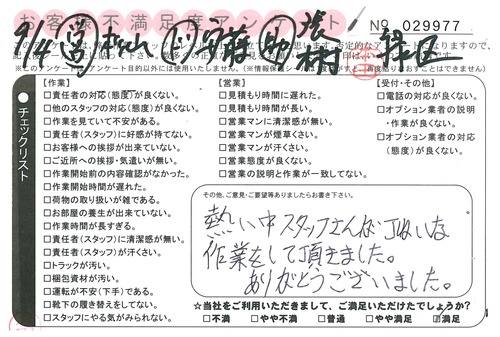 お客様不満足度アンケート
No 029977
9/6
緑区
チェックリスト
【作業】
□責任者の対応(態度)が良くない。
□他のスタッフの対応(態度)が良くない。
□作業を見ていて不安がある。
□責任者(スタッフ)に好感が持てない。
□お客様への挨拶が出来ていない。
□ご近所への挨拶・気遣いが無い。
□作業開始前の内容確認がなかった。
□作業開始時間が遅れた。
□荷物の取り扱いが雑である。
□お部屋の養生が出来ていない。
□作業時間が長すぎる。
□責任者(スタッフ)に清潔感が無い。
□責任者(スタッフ)が汗くさい。
□トラックが汚い。
□梱包資材が汚い。
□運転が不安(下手)である。
□靴下の履き替えをしてない。
□スタッフにやる気がみられない。
【営業】
□見積もり時間に遅れた。
□見積もり時間が長い。
□営業マンに清潔感が無い。
□営業マンが煙草くさい。
□営業マンが汗くさい。
□営業態度が良くない。
□営業の説明と作業が一致してない。
【受付・その他】
□電話の対応が良くない。
□オプション業者の説明・作業が良くない。
□オプション業者の対応(態度)が良くない。
その他、ご意見・ご要望等ありましたらお書き下さい。
熱い中スタッフさんがていねいな
作業をして頂きました。
ありがとうございました。
☆当社をご利用いただきまして、ご満足いただけたでしょうか?
□不満 □やや不満 □普通 □やや満足 ☑満足